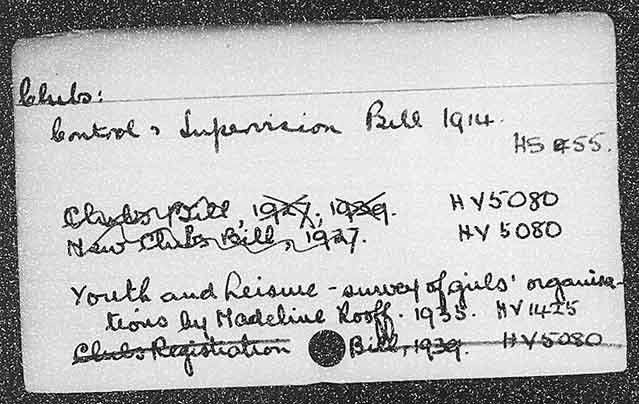 Clubs:
Control & Supervision Bill 1914.
HS 255.
Clubs Bill, 1927, 1939. HV5080
New Clubs Bill, 1937. HV5080
Youth and Leisure - survey of girls' organisa-
tions by Madeline Rooff. 1935. HV1425
Clubs Registration Bill, 1939. HV5080